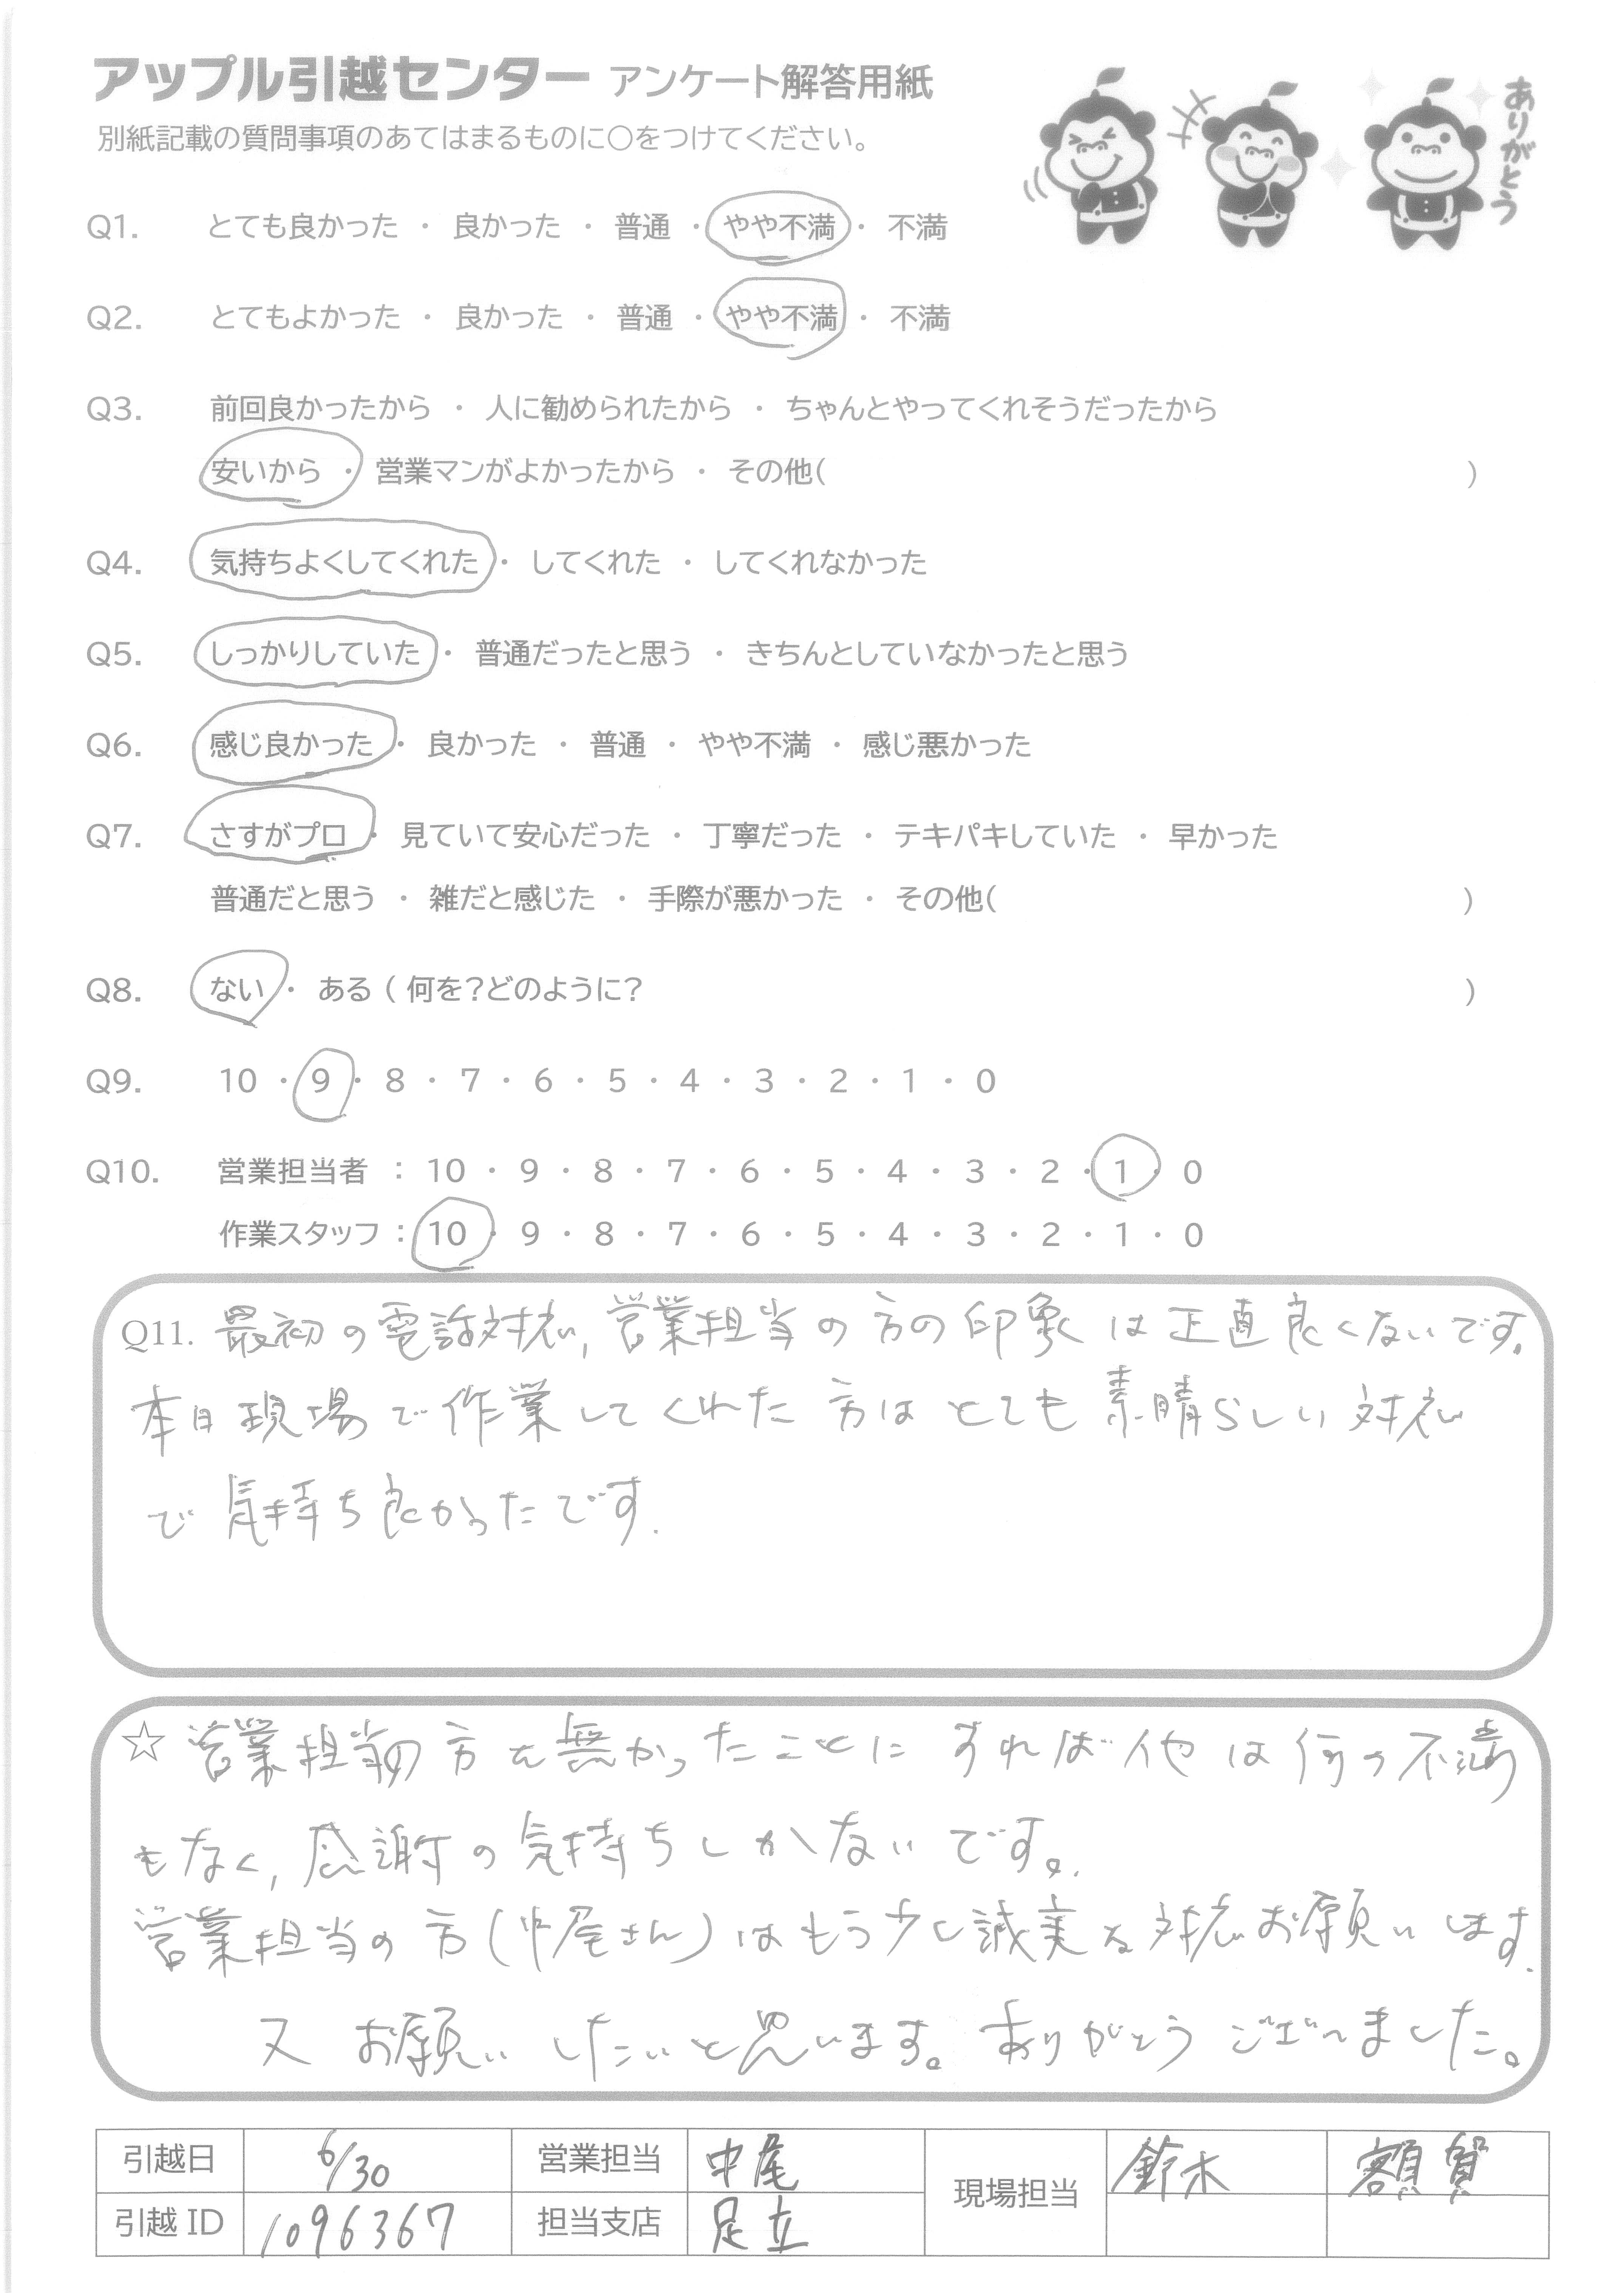 アップル引越センター アンケート解答用紙
別紙記載の質問事項のあてはまるものに○をつけてください。
ありがとう
Q1. とても良かった ・ 良かった ・ 普通 ・ やや不満 ・ 不満
Q2. とてもよかった ・ 良かった ・ 普通 ・ やや不満 ・ 不満
Q3. 前回良かったから ・ 人に勧められたから ・ ちゃんとやってくれそうだったから
安いから ・ 営業マンがよかったから ・ その他( )
Q4. 気持ちよくしてくれた ・ してくれた ・ してくれなかった
Q5. しっかりしていた ・ 普通だったと思う ・ きちんとしていなかったと思う
Q6. 感じ良かった ・ 良かった ・ 普通 ・ やや不満 ・ 感じ悪かった
Q7. さすがプロ ・ 見ていて安心だった ・ 丁寧だった ・ テキパキしていた ・ 早かった
普通だと思う ・ 雑だと感じた ・ 手際が悪かった ・ その他( )
Q8. ない ・ ある ( 何を?どのように? )
Q9. 10 ・ 9 ・ 8 ・ 7 ・ 6 ・ 5 ・ 4 ・ 3 ・ 2 ・ 1 ・ 0
Q10. 営業担当者 : 10 ・ 9 ・ 8 ・ 7 ・ 6 ・ 5 ・ 4 ・ 3 ・ 2 ・ 1 ・ 0
作業スタッフ : 10 ・ 9 ・ 8 ・ 7 ・ 6 ・ 5 ・ 4 ・ 3 ・ 2 ・ 1 ・ 0
Q11. 最初の電話対応, 営業担当の方の印象は正直良くないです.
本日現場で作業してくれた方はとても素晴らしい対応
で気持ち良かったです.
☆ 営業担当の方を無かったことにすれば他は何の不満
もなく, 感謝の気持ちしかないです。
営業担当の方(中尾さん)はもう少し誠実な対応お願いします.
又お願いしたいと思います。ありがとうございました。
引越日 6/30 営業担当 中尾 現場担当 鈴木 額賀
引越 ID 1096367 担当支店 足立